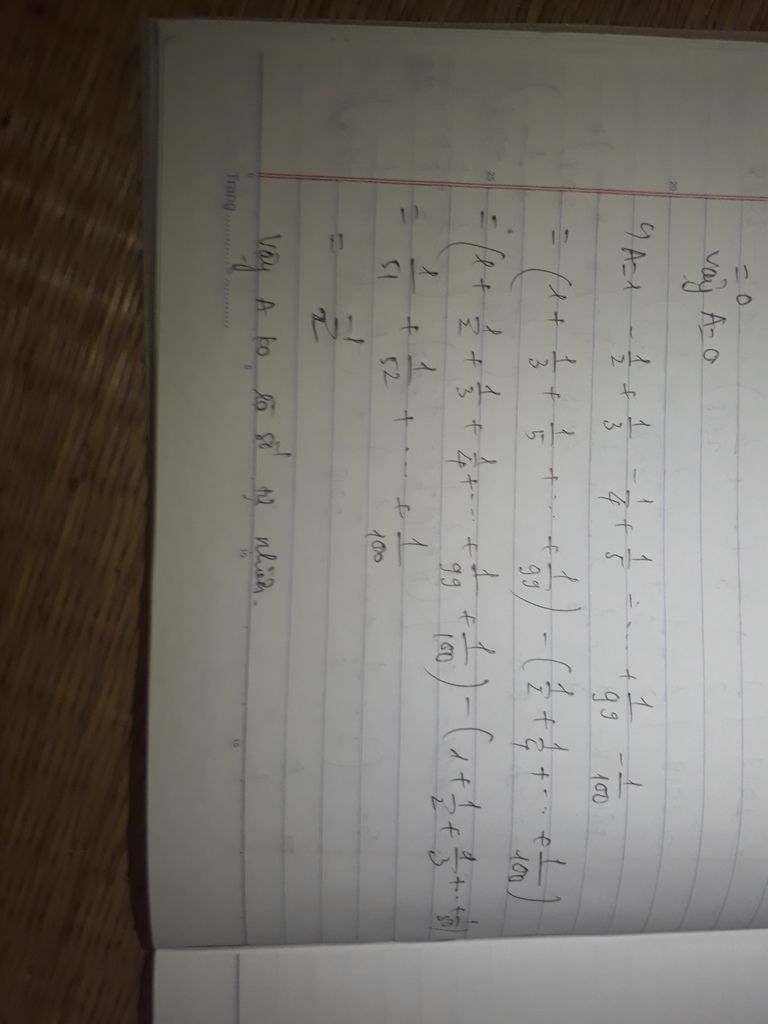 = 0
vậy A = 0
A = 1 - 1/2 + 1/3 - 1/4 + 1/5 - ... + 1/99 - 1/100
= (1 + 1/3 + 1/5 + ... + 1/99) - (1/2 + 1/4 + ... + 1/100)
= (1 + 1/2 + 1/3 + 1/4 + ... + 1/99 + 1/100) - (1 + 1/2 + 1/3 + ... + 1/50)
= 1/51 + 1/52 + ... + 1/100
= 1/2
Vậy A ko là số tự nhiên.
Trang
20
25
5
10
15